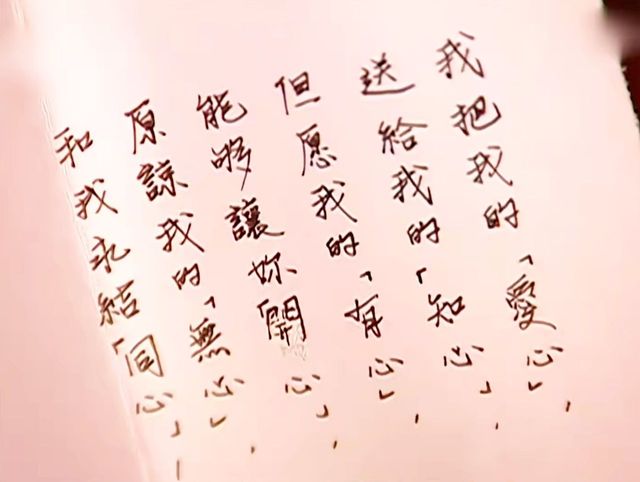 我把我的「愛心」，
送給我的「知心」，
但愿我的「有心」，
能够讓妳開心」，
原諒我的「無心」，
和我永結「同心」，